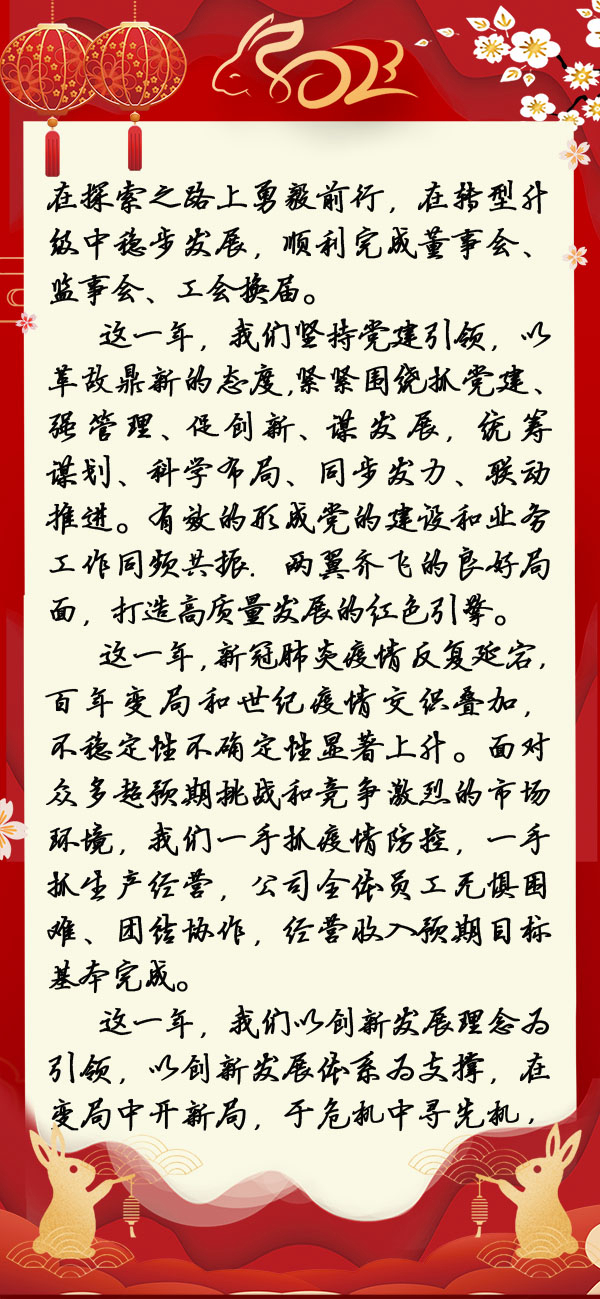 2023
在探索之路上勇毅前行，在转型升
级中稳步发展，顺利完成董事会、
监事会、工会换届。
这一年，我们坚持党建引领，以
革故鼎新的态度,紧紧围绕抓党建、
强管理、促创新、谋发展，统筹
谋划、科学布局、同步发力、联动
推进。有效的形成党的建设和业务
工作同频共振．两翼齐飞的良好局
面，打造高质量发展的红色引擎。
这一年,新冠肺炎疫情反复延宕，
百年变局和世纪疫情交织叠加，
不稳定性不确定性显著上升。面对
众多超预期挑战和竞争激烈的市场
环境，我们一手抓疫情防控，一手
抓生产经营，公司全体员工无惧困
难、团结协作，经营收入预期目标
基本完成。
这一年，我们以创新发展理念为
引领，以创新发展体系为支撑，在
变局中开新局，于危机中寻先机，